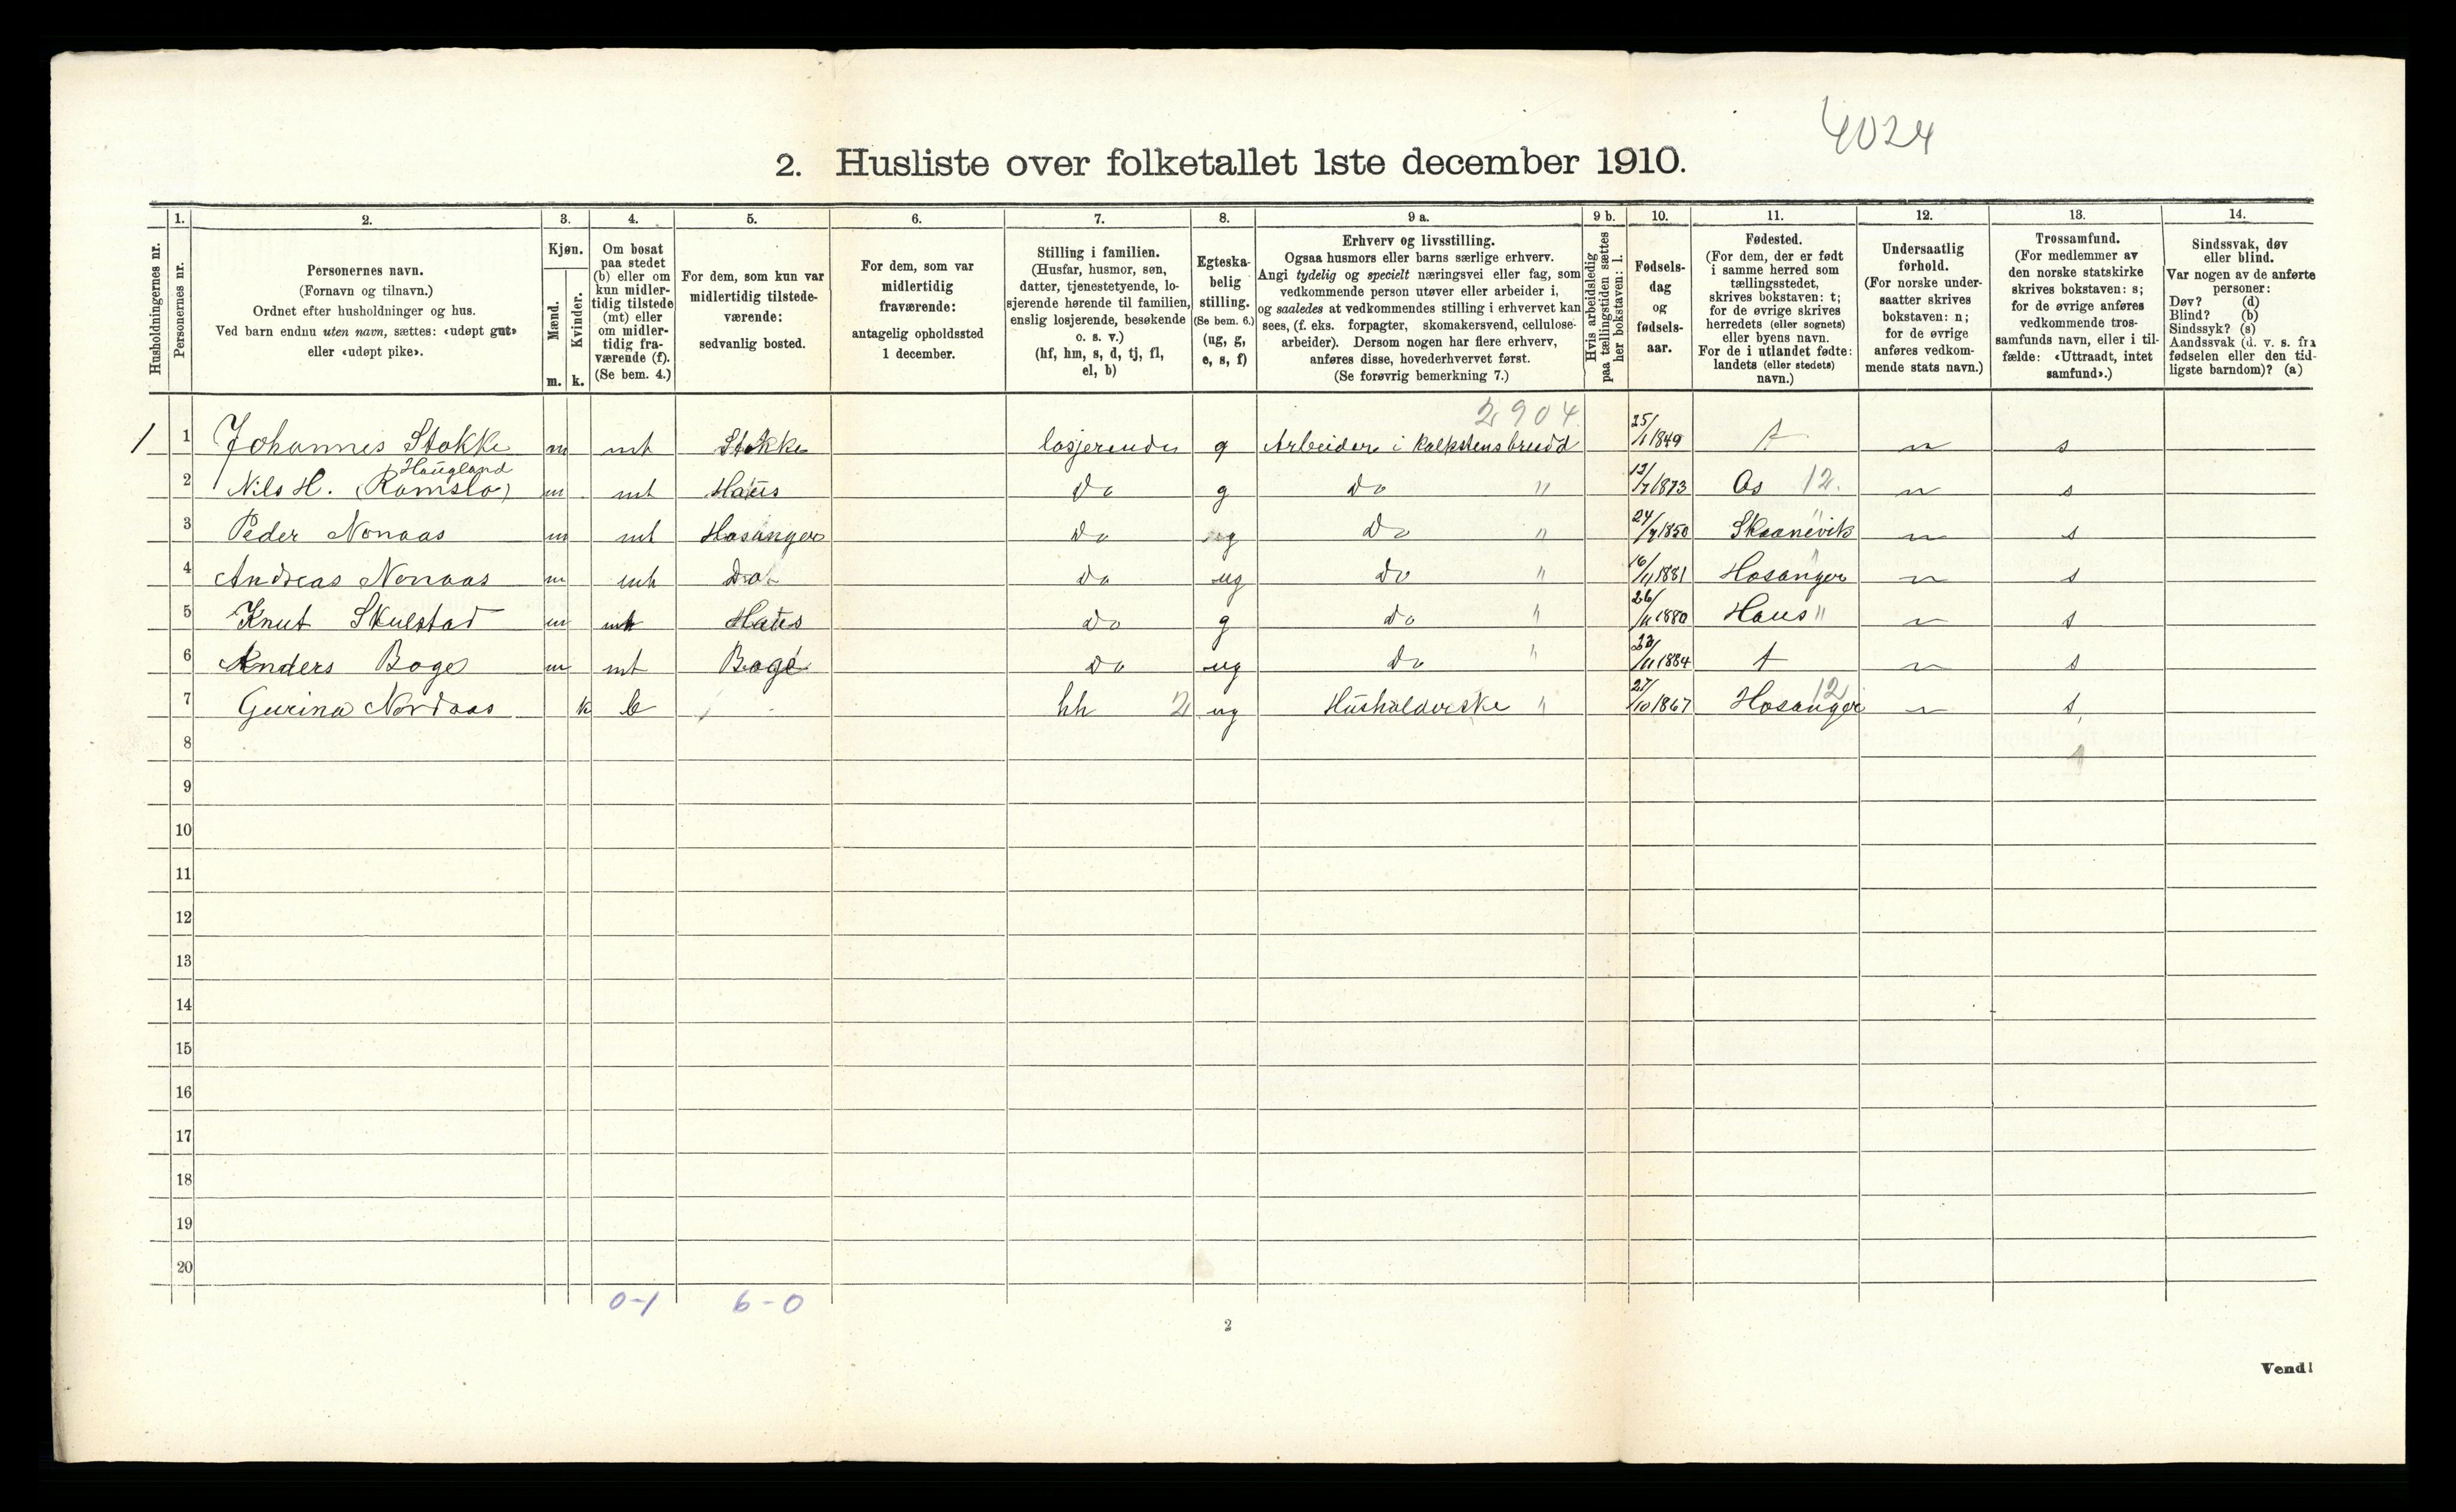 4024
2. Husliste over folketallet 1ste december 1910.
Husholdningernes nr.
1.
Personernes nr.
2.
Personernes navn.
(Fornavn og tilnavn.)
Ordnet efter husholdninger og hus.
Ved barn endnu uten navn, sættes: «udøpt gut»
eller «udøpt pike».
3.
Kjøn.
Mænd.
Kvinder.
m. k.
4.
Om bosat
paa stedet
(b) eller om
kun midler-
tidig tilstede
(mt) eller
om midler-
tidig fra-
værende (f).
(Se bem. 4.)
5.
For dem, som kun var
midlertidig tilstede-
værende:
sedvanlig bosted.
6.
For dem, som var
midlertidig
fraværende:
antagelig opholdssted
1 december.
7.
Stilling i familien.
(Husfar, husmor, søn,
datter, tjenestetyende, lo-
sjerende hørende til familien,
enslig losjerende, besøkende
o. s. v.)
(hf, hm, s, d, tj, fl,
el, b)
8.
Egteska-
belig
stilling.
(Se bem. 6.)
(ug, g,
e, s, f)
9 a.
Erhverv og livsstilling.
Ogsaa husmors eller barns særlige erhverv.
Angi tydelig og specielt næringsvei eller fag, som
vedkommende person utøver eller arbeider i,
og saaledes at vedkommendes stilling i erhvervet kan
sees, (f. eks. forpagter, skomakersvend, cellulose-
arbeider). Dersom nogen har flere erhverv,
anføres disse, hovederhvervet først.
(Se forøvrig bemerkning 7.)
9 b.
Hvis arbeidsledig
paa tællingstiden sættes
her bokstaven: l.
10.
Fødsels-
dag
og
fødsels-
aar.
11.
Fødested.
(For dem, der er født
i samme herred som
tællingsstedet,
skrives bokstaven: t;
for de øvrige skrives
herredets (eller sognets)
eller byens navn.
For de i utlandet fødte:
landets (eller stedets)
navn.)
12.
Undersaatlig
forhold.
(For norske under-
saatter skrives
bokstaven: n;
for de øvrige
anføres vedkom-
mende stats navn.)
13.
Trossamfund.
(For medlemmer av
den norske statskirke
skrives bokstaven: s;
for de øvrige anføres
vedkommende tros-
samfunds navn, eller i til-
fælde: «Uttraadt, intet
samfund».)
14.
Sindssvak, døv
eller blind.
Var nogen av de anførte
personer:
Døv? (d)
Blind? (b)
Sindssyk? (s)
Aandssvak (d. v. s. fra
fødselen eller den tid-
ligste barndom)? (a)
2904.
1 1 Johannes Stokke m mt Stokke losjerende g Arbeider i kalkstensbrudd 25/1 1849 t n s
Haugland
2 Nils H. (Ramslo) m mt Haus do g do " 13/7 1873 Os 12. n s
3 Peder Nonaas m mt Hosanger do ug do " 24/9 1850 Skaanevik " n s
4 Andreas Nonaas m mt do do ug do " 16/11 1881 Hosanger " n s
5 Knut Skulstad m mt Haus do g do " 26/11 1880 Haus " n s
6 Anders Boge m mt Boge do ug do " 23/11 1884 t n s
7 Gurina Nordaas k b hh 2 ug Husholderske " 27/10 1867 Hosanger 12 n s
8
9
10
11
12
13
14
15
16
17
18
19
20
0-1 6-0
2
Vend!